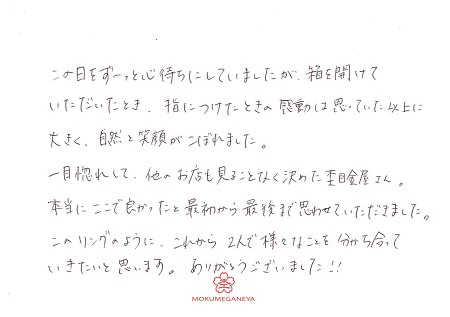 この日をずーっと心待ちにしていましたが、箱を開けて
いただいたとき、指につけたときの感動は思っていた以上に
大きく、自然と笑顔がこぼれました。
一目惚れして、他のお店も見ることなく決めた杢目金屋さん。
本当にここで良かったと最初から最後まで思わせていただきました。
このリングのように、これから2人で様々なことを分かち合って
いきたいと思います。ありがとうございました!!
MOKUMEGANEYA